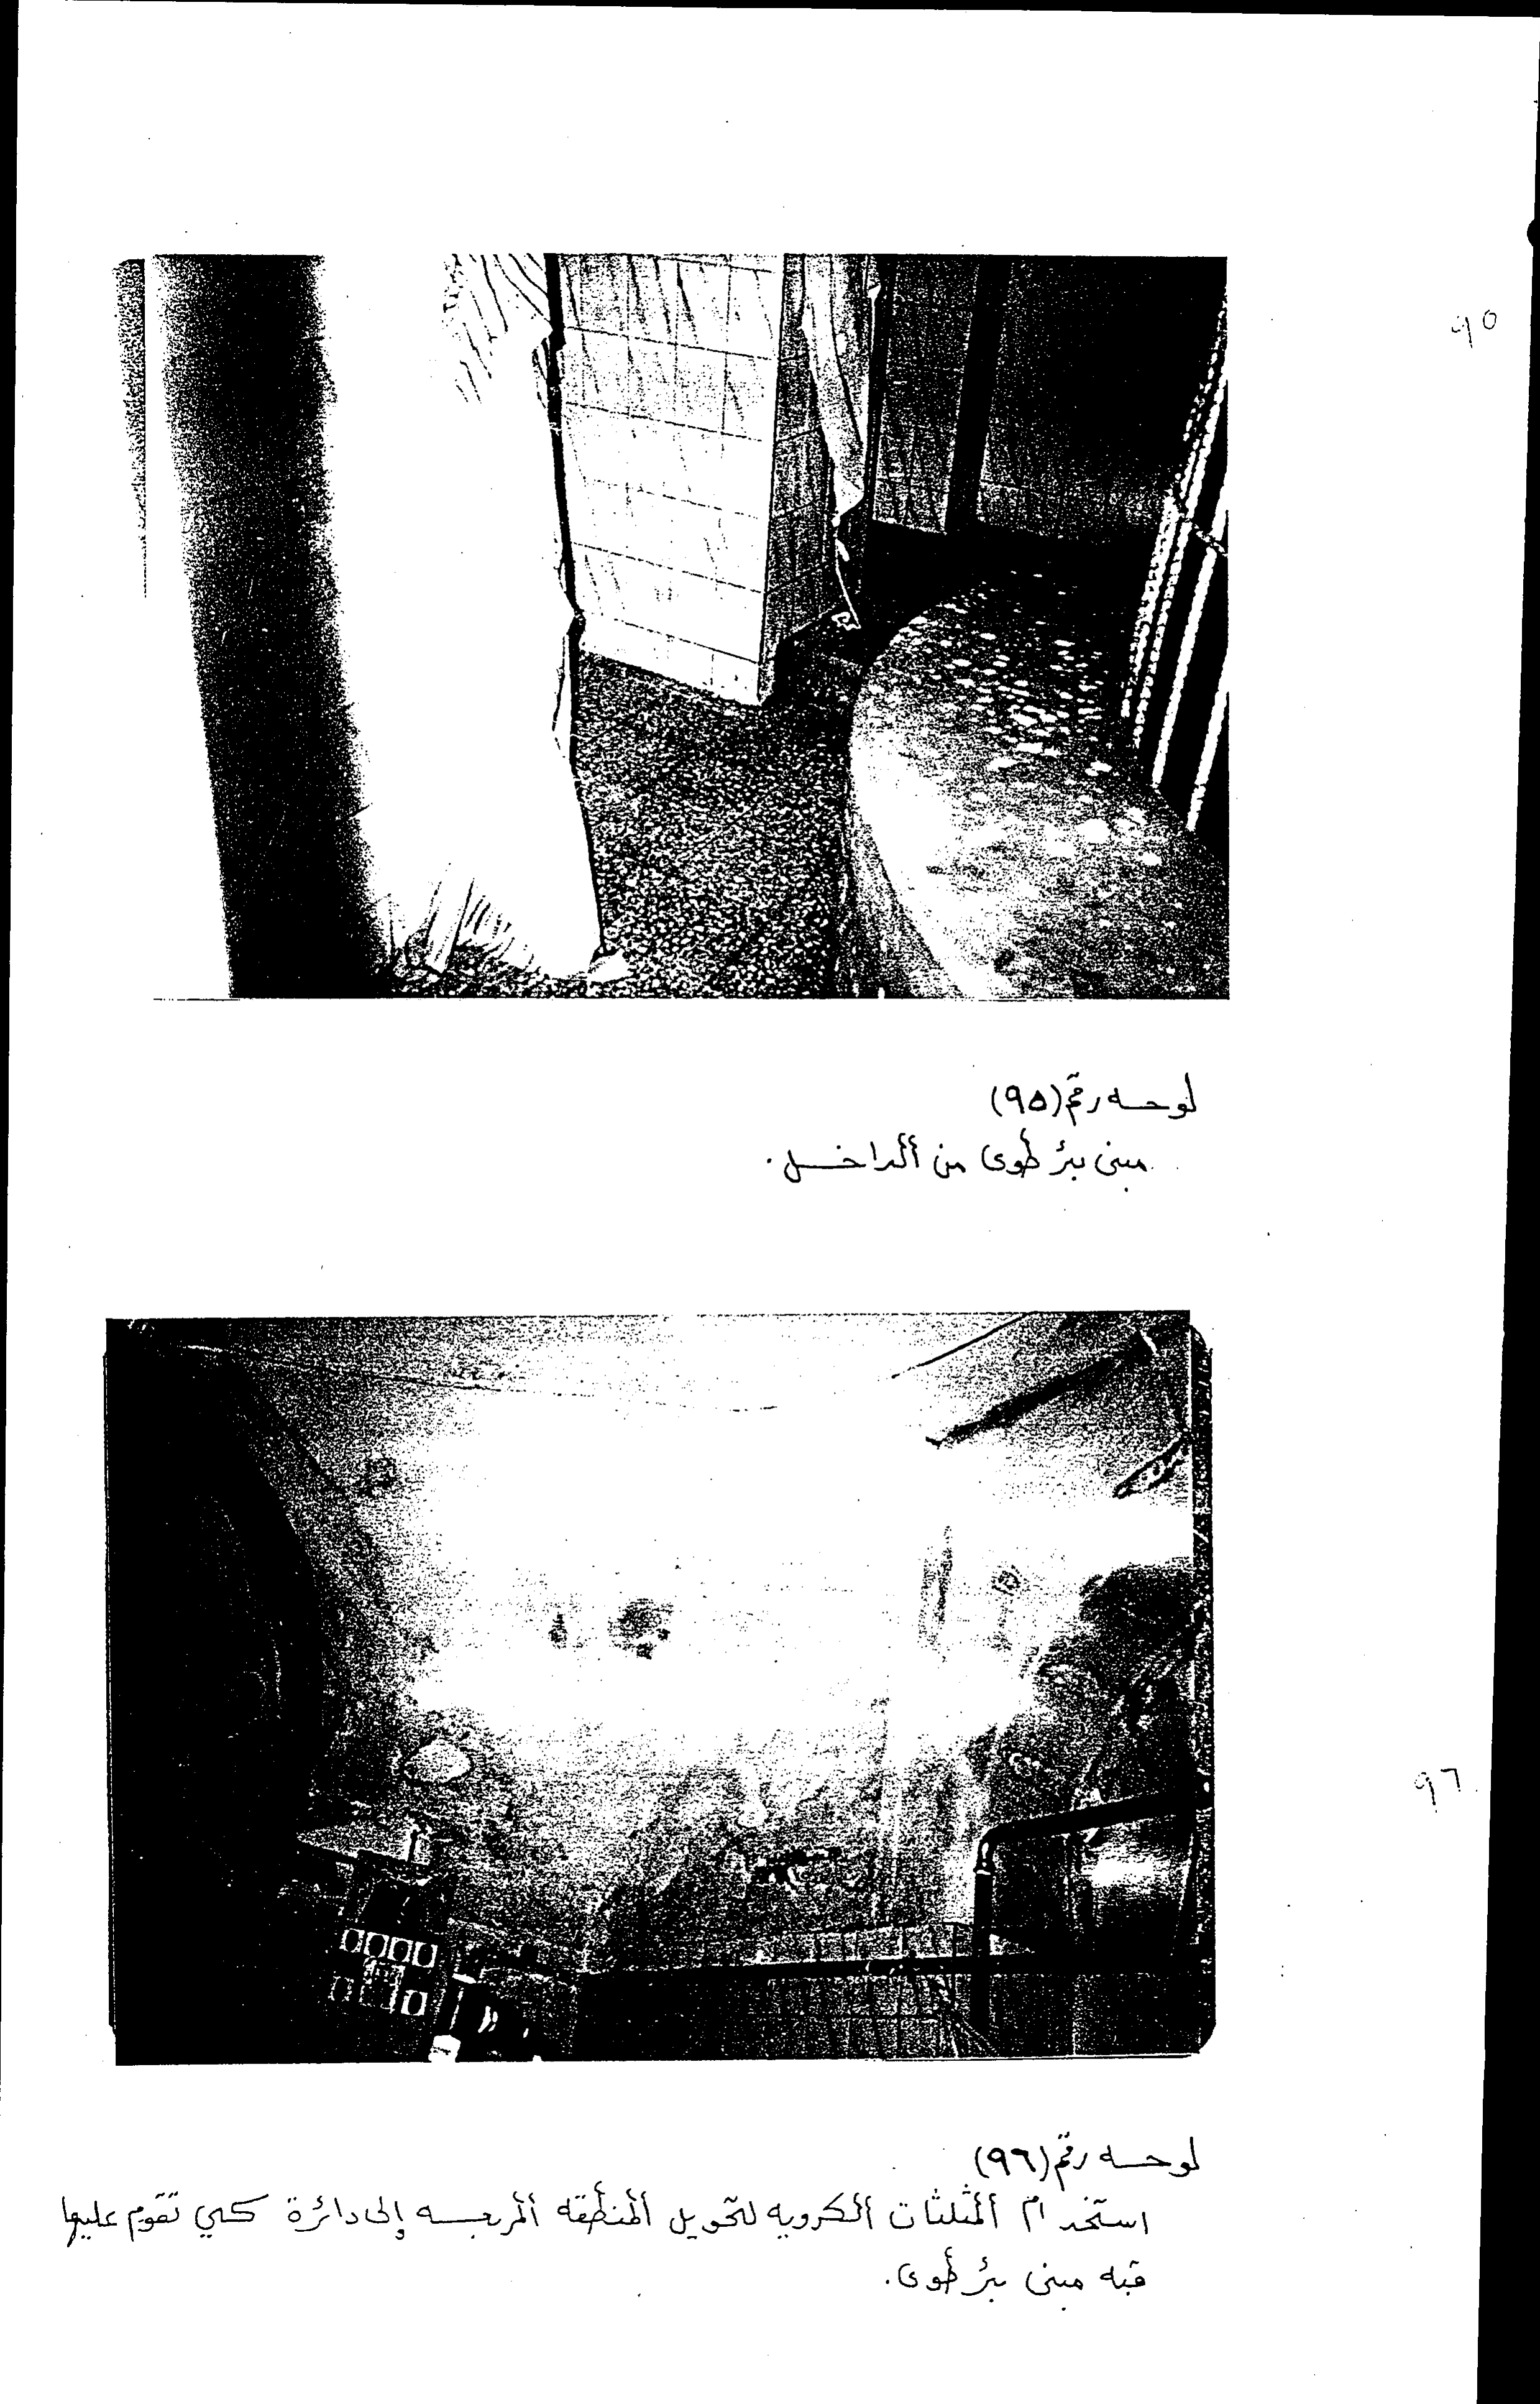 ٩٥
لوحه رقم (٩٥)
مبنى بئر طوى من الداخل.
٩٦
لوحه رقم (٩٦)
استخدام المثلثات الكرويه لتحويل المنطقه المربعه إلى دائرة كي تقوم عليها
قبه مبنى بئر طوى.